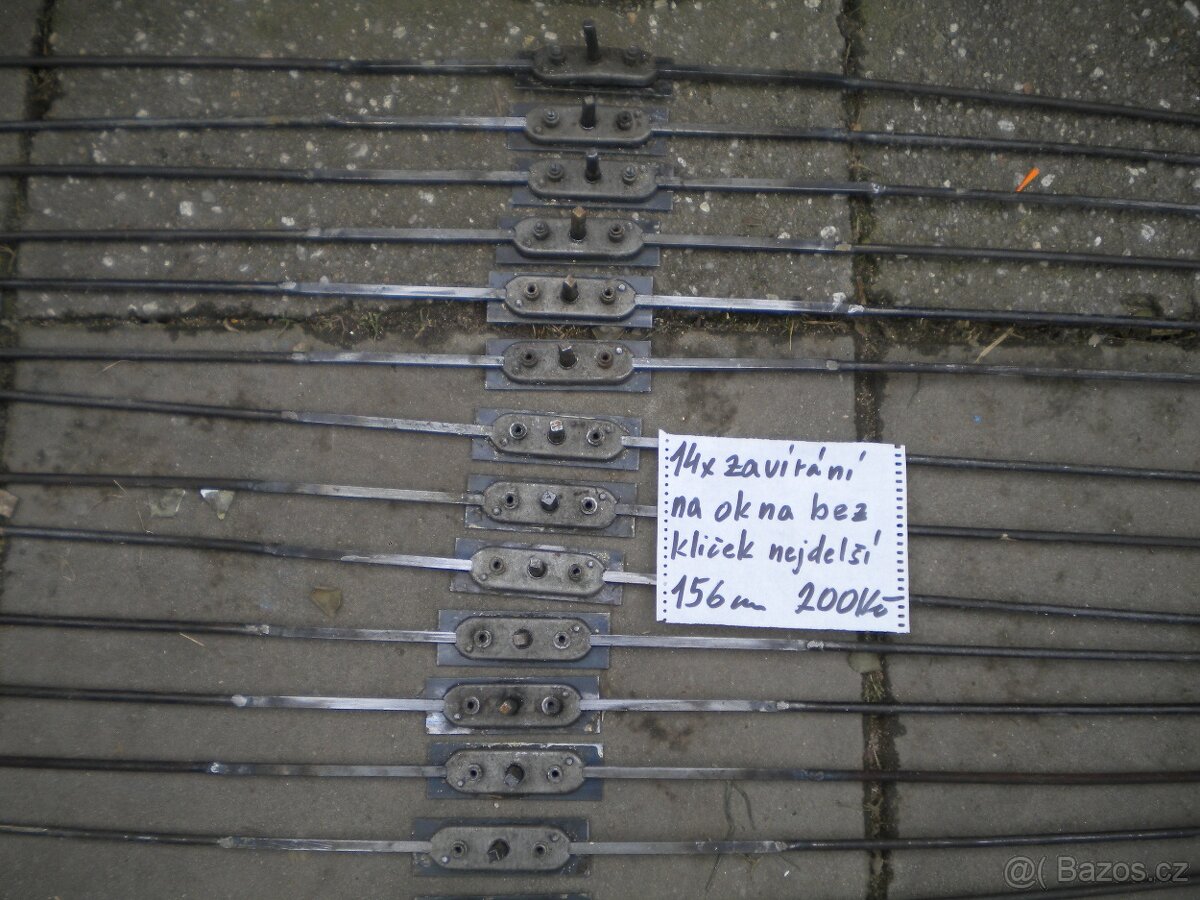 14x zavírání
na okna bez
kliček nejdelší
156cm 200Kč
@( Bazos.cz